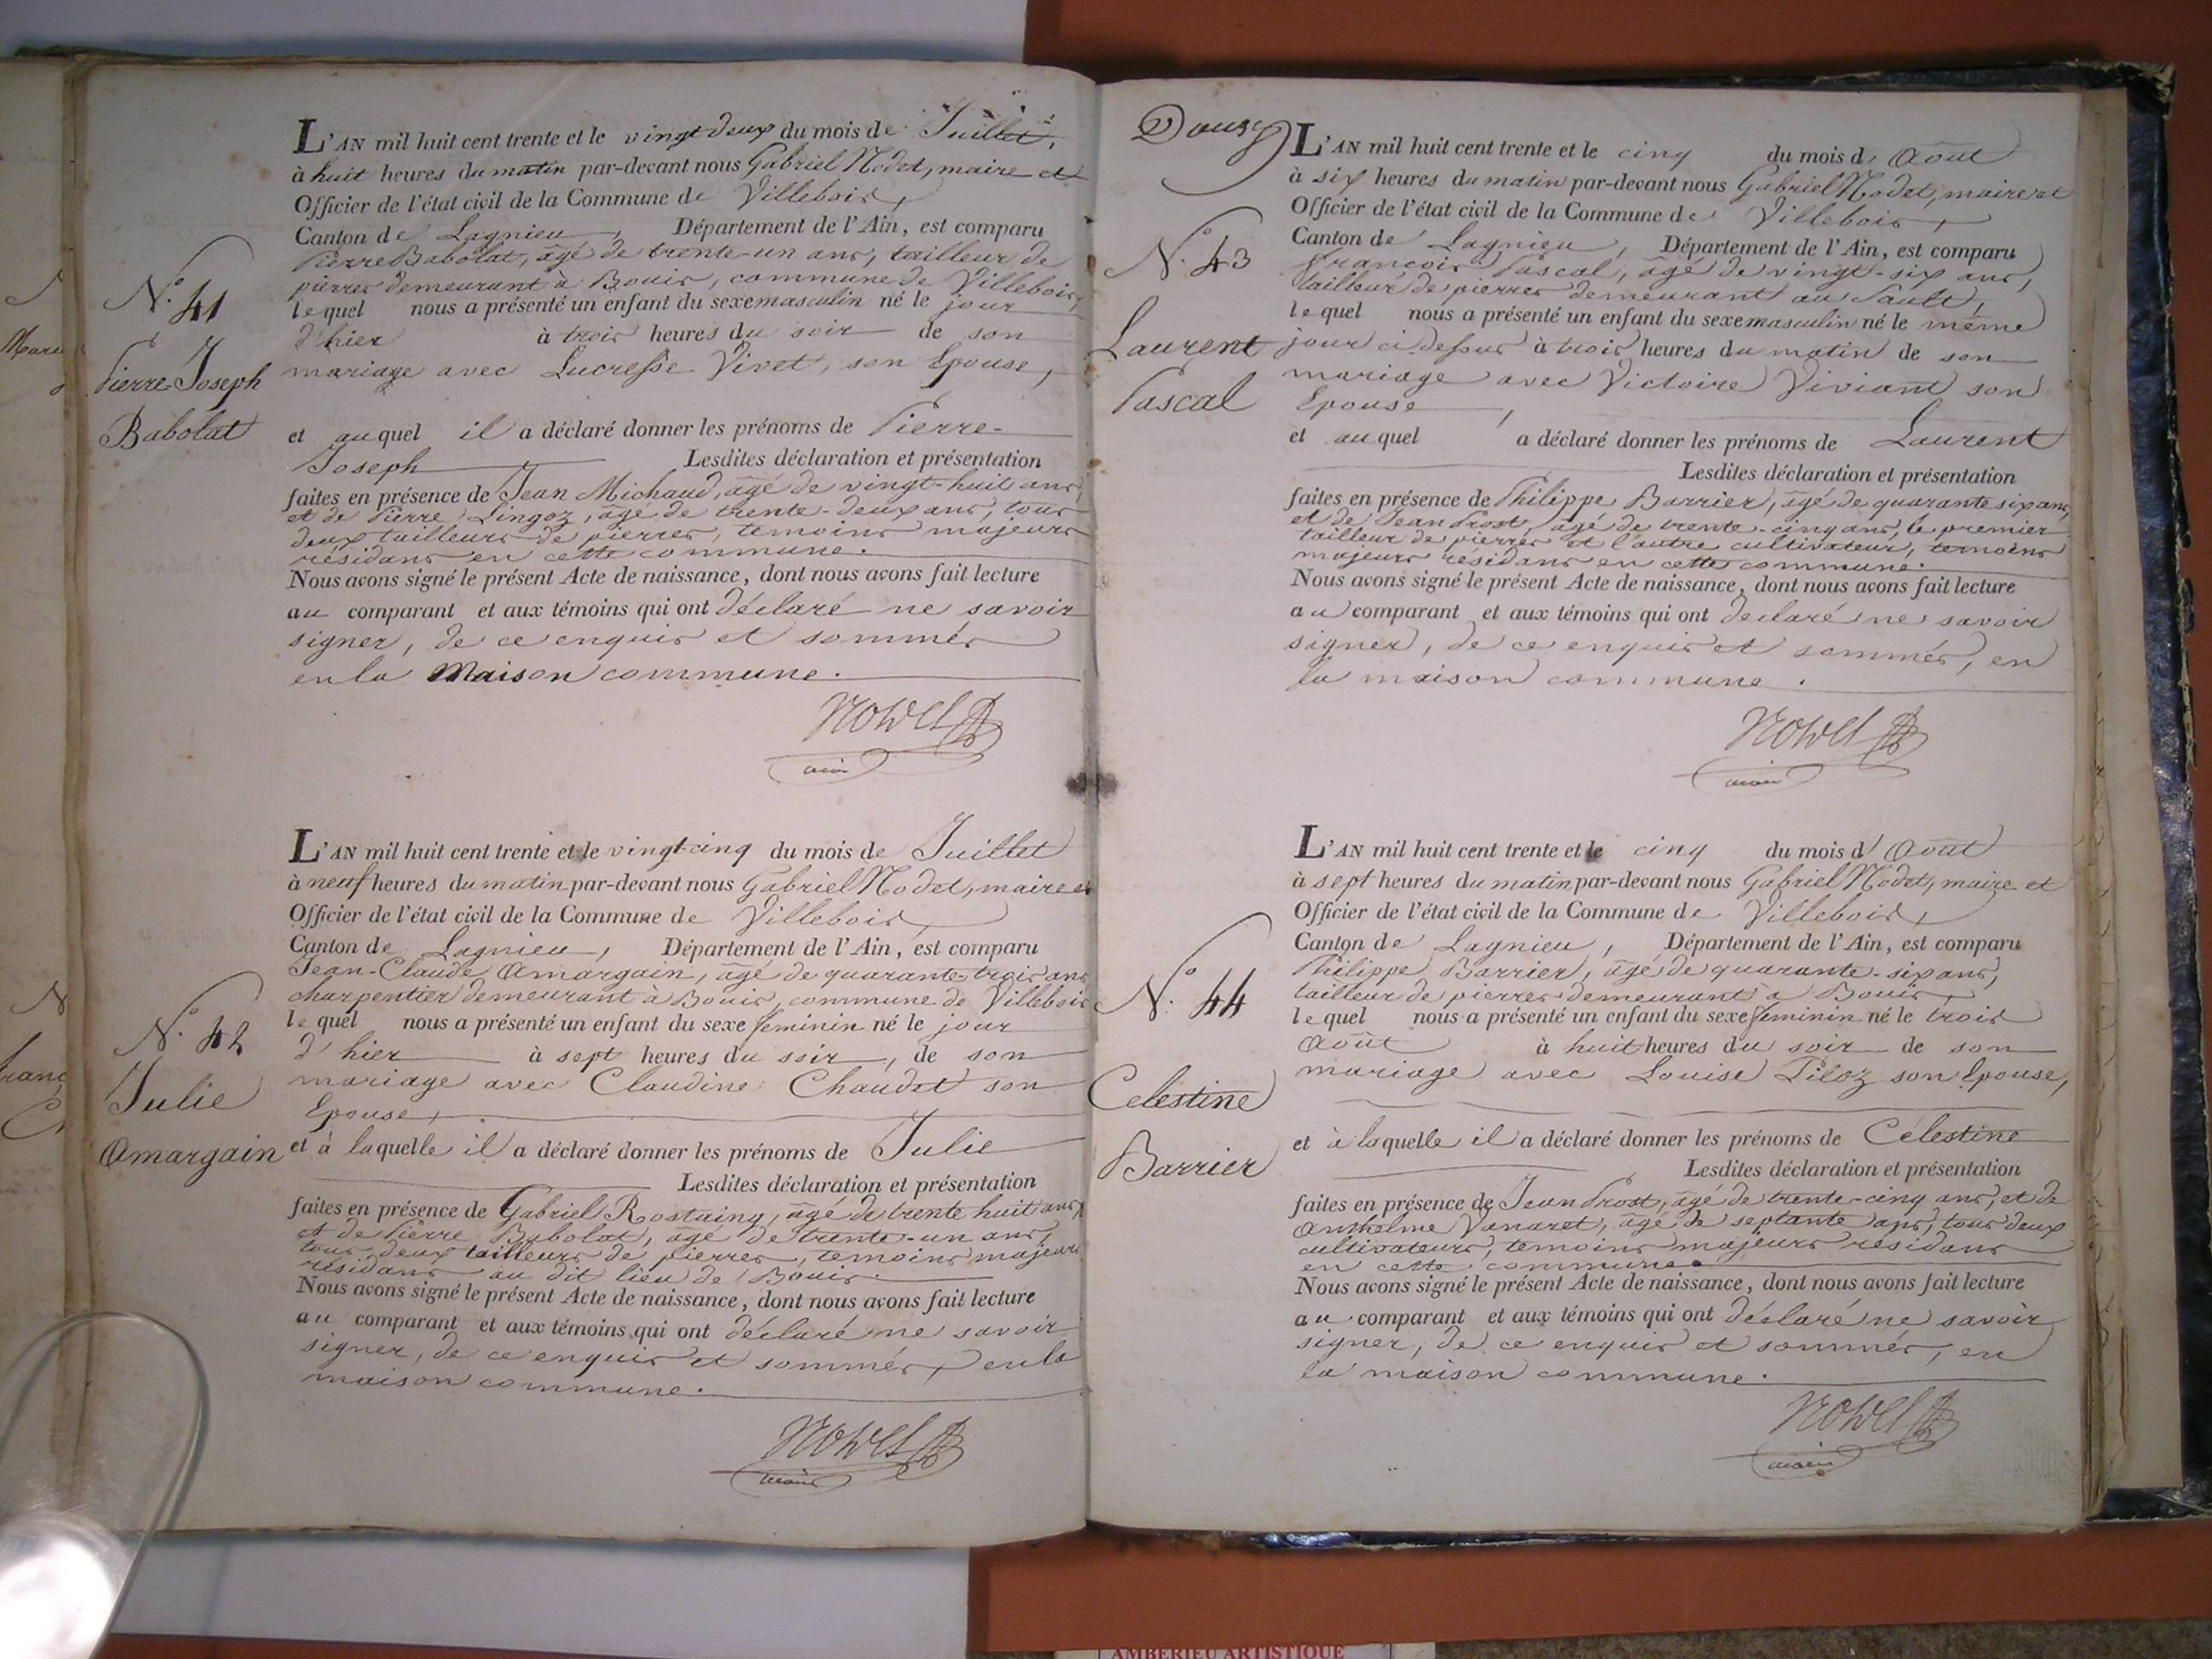 L'AN mil huit cent trente et le vingt deux du mois de Juillet,
à huit heures du matin par-devant nous Gabriel Nodet, maire et
Officier de l'état civil de la Commune de Villebois,
Canton de Lagnieu, Département de l'Ain, est comparu
Pierre Babolat, âgé de trente-un ans, tailleur de
pierres demeurant à Bouis, commune de Villebois,
lequel nous a présenté un enfant du sexe masculin né le jour
d'hier à trois heures du soir de son
mariage avec Lucresse Vivet, son Epouse,
et auquel il a déclaré donner les prénoms de Pierre-
Joseph Lesdites déclaration et présentation
faites en présence de Jean Michaud, âgé de vingt-huit ans,
et de Pierre Lingoz, âgé de trente-deux ans, tous
deux tailleurs de pierres, temoins majeurs
résidans en cette commune.
Nous avons signé le présent Acte de naissance, dont nous avons fait lecture
au comparant et aux témoins qui ont déclaré ne savoir
signer, de ce enquis et sommés
en la maison commune.
Nodet
maire
N.° 41
Pierre-Joseph
Babolat
L'AN mil huit cent trente et le vingt-cinq du mois de Juillet
à neuf heures du matin par-devant nous Gabriel Nodet, maire et
Officier de l'état civil de la Commune de Villebois,
Canton de Lagnieu, Département de l'Ain, est comparu
Jean-Claude Amargain, âgé de quarante-trois ans
charpentier demeurant à Bouis, commune de Villebois
lequel nous a présenté un enfant du sexe feminin né le jour
d'hier à sept heures du soir, de son
mariage avec Claudine Chaudet son
Epouse,
et à laquelle il a déclaré donner les prénoms de Julie
Lesdites déclaration et présentation
faites en présence de Gabriel Rostaing, âgé de trente huit ans,
et de Pierre Babolat, âgé de trente-un ans,
tous deux tailleurs de pierres, temoins majeurs
résidans au dit lieu de Bouis.
Nous avons signé le présent Acte de naissance, dont nous avons fait lecture
au comparant et aux témoins qui ont déclaré ne savoir
signer, de ce enquis et sommés, en la
maison commune.
Nodet
maire
N.° 42
Julie
Amargain
Douze
L'AN mil huit cent trente et le cinq du mois d' Août
à six heures du matin par-devant nous Gabriel Nodet, maire et
Officier de l'état civil de la Commune de Villebois,
Canton de Lagnieu, Département de l'Ain, est comparu
François Pascal, âgé de vingt-six ans,
tailleur de pierres demeurant au Sault,
lequel nous a présenté un enfant du sexe masculin né le même
jour ci-dessus à trois heures du matin de son
mariage avec Victoire Viviant son
Epouse,
et auquel a déclaré donner les prénoms de Laurent
Lesdites déclaration et présentation
faites en présence de Philippe Barrier, âgé de quarante six ans,
et de Jean Prost, âgé de trente-cinq ans, le premier
tailleur de pierres et l'autre cultivateur, temoins
majeurs résidans en cette commune.
Nous avons signé le présent Acte de naissance, dont nous avons fait lecture
au comparant et aux témoins qui ont declaré ne savoir
signer, de ce enquis et sommés, en
la maison commune.
Nodet
maire
N.° 43
Laurent
Pascal
L'AN mil huit cent trente et le cinq du mois d' Août
à sept heures du matin par-devant nous Gabriel Nodet, maire et
Officier de l'état civil de la Commune de Villebois,
Canton de Lagnieu, Département de l'Ain, est comparu
Philippe Barrier, âgé de quarante-six ans,
tailleur de pierres demeurant à Bouis,
lequel nous a présenté un enfant du sexe feminin né le trois
Août à huit heures du soir de son
mariage avec Louise Piloz son Epouse,
et à laquelle il a déclaré donner les prénoms de Célestine
Lesdites déclaration et présentation
faites en présence de Jean Prost, âgé de trente-cinq ans, et de
Anthelme Vanaret, âgé de septante ans, tous deux
cultivateurs, temoins majeurs résidans
en cette commune.
Nous avons signé le présent Acte de naissance, dont nous avons fait lecture
au comparant et aux témoins qui ont déclaré ne savoir
signer, de ce enquis et sommés, en
la maison commune.
Nodet
maire
N.° 44
Celestine
Barrier
AMBERIEU ARTISTIQUE